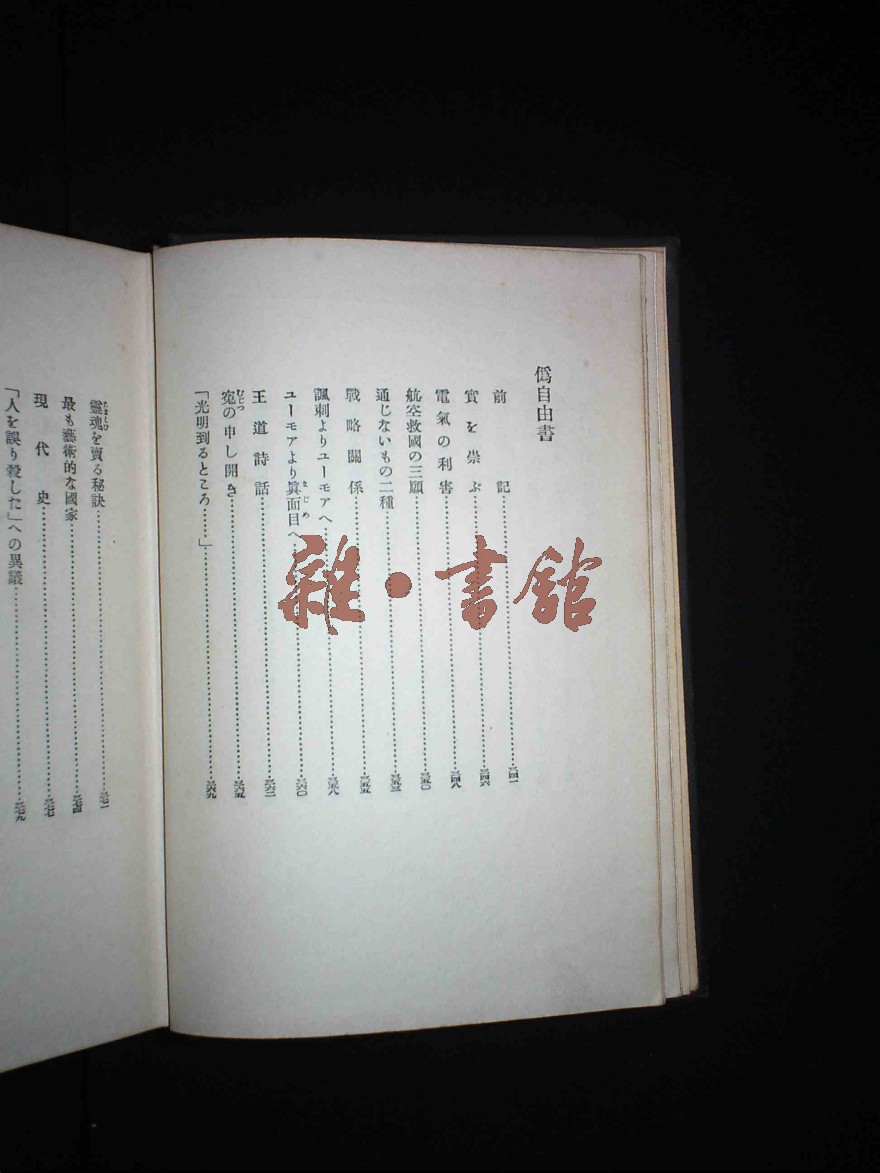 僞自由書
前記……三四一
實を崇ぶ……三四六
電氣の利害……三四八
航空救國の三願……三五〇
通じないもの二種……三五三
戰略關係……三五五
諷刺よりユーモアへ……三五八
ユーモアより眞面目へ……三六〇
まじめ
王道詩話……三六二
寃の申し開き……三六五
むじつ
「光明到るところ……」……三六九
靈魂を賣る秘訣……三七一
最も藝術的な國家……三七四
現代史……三七七
「人を誤り殺した」への異議……三七九
雜·書館